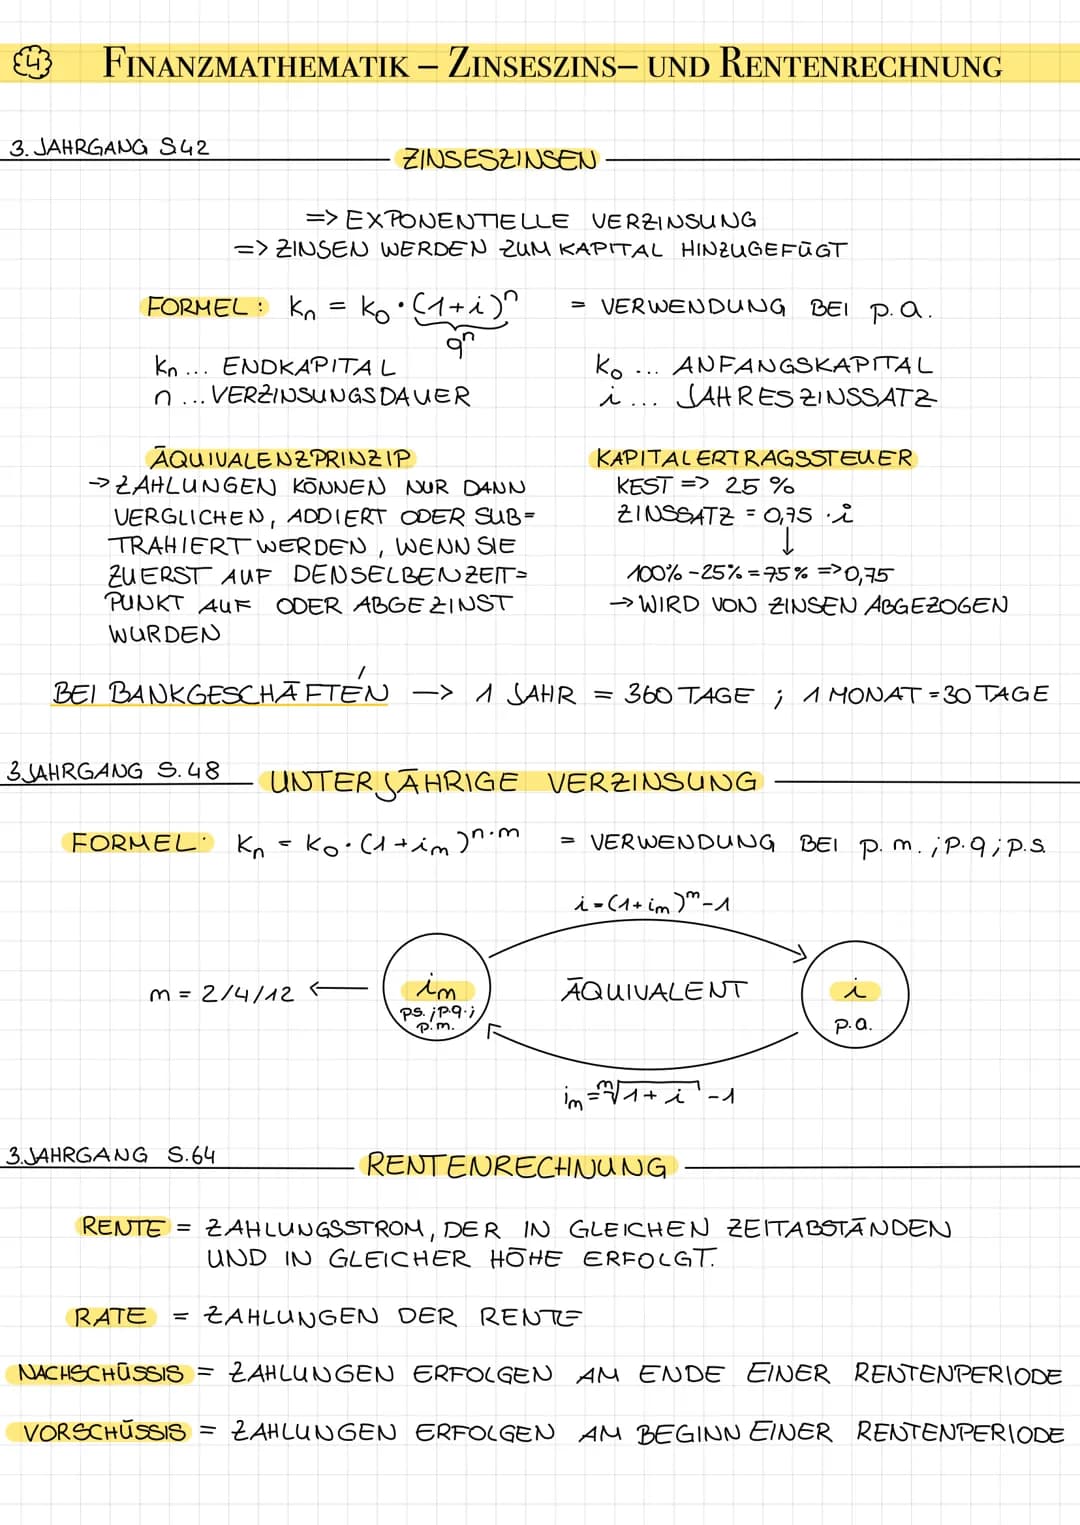 4 FINANZMATHEMATIK – ZINSESZINS– UND RENTENRECHNUNG
3. JAHRGANG S42
ZINSESZINSEN
=> EXPONENTIELLE VERZINSUNG
=> ZINSEN WERDEN ZUM KAPITAL HINZUGEFÜGT
FORMEL: Kn = K0 · (1+i)^n = VERWENDUNG BEI p.a.
q^n
Kn ... ENDKAPITAL
K0 ... ANFANGSKAPITAL
n ... VERZINSUNGSDAUER
i ... JAHRESZINSSATZ
ÄQUIVALENZPRINZIP
→ ZAHLUNGEN KÖNNEN NUR DANN
VERGLICHEN, ADDIERT ODER SUB=
TRAHIERT WERDEN, WENN SIE
ZUERST AUF DENSELBEN ZEIT=
PUNKT AUF ODER ABGEZINST
WURDEN
KAPITALERTRAGSSTEUER
KEST => 25 %
ZINSSATZ = 0,75 · i
↓
100% - 25% = 75% => 0,75
→ WIRD VON ZINSEN ABGEZOGEN
BEI BANKGESCHÄFTEN —> 1 JAHR = 360 TAGE ; 1 MONAT = 30 TAGE
3. JAHRGANG S.48
UNTERJÄHRIGE VERZINSUNG
FORMEL: Kn = K0 · (1+im)^n·m = VERWENDUNG BEI p.m.; p.q; p.s.
i = (1+im)^m - 1
m = 2/4/12 ←
im
p.s.; p.q.;
p.m.
ÄQUIVALENT
i
p.a.
im = ^m√1+i - 1
3. JAHRGANG S.64
RENTENRECHNUNG
RENTE = ZAHLUNGSSTROM, DER IN GLEICHEN ZEITABSTÄNDEN
UND IN GLEICHER HÖHE ERFOLGT.
RATE = ZAHLUNGEN DER RENTE
NACHSCHÜSSIS = ZAHLUNGEN ERFOLGEN AM ENDE EINER RENTENPERIODE
VORSCHÜSSIS = ZAHLUNGEN ERFOLGEN AM BEGINN EINER RENTENPERIODE